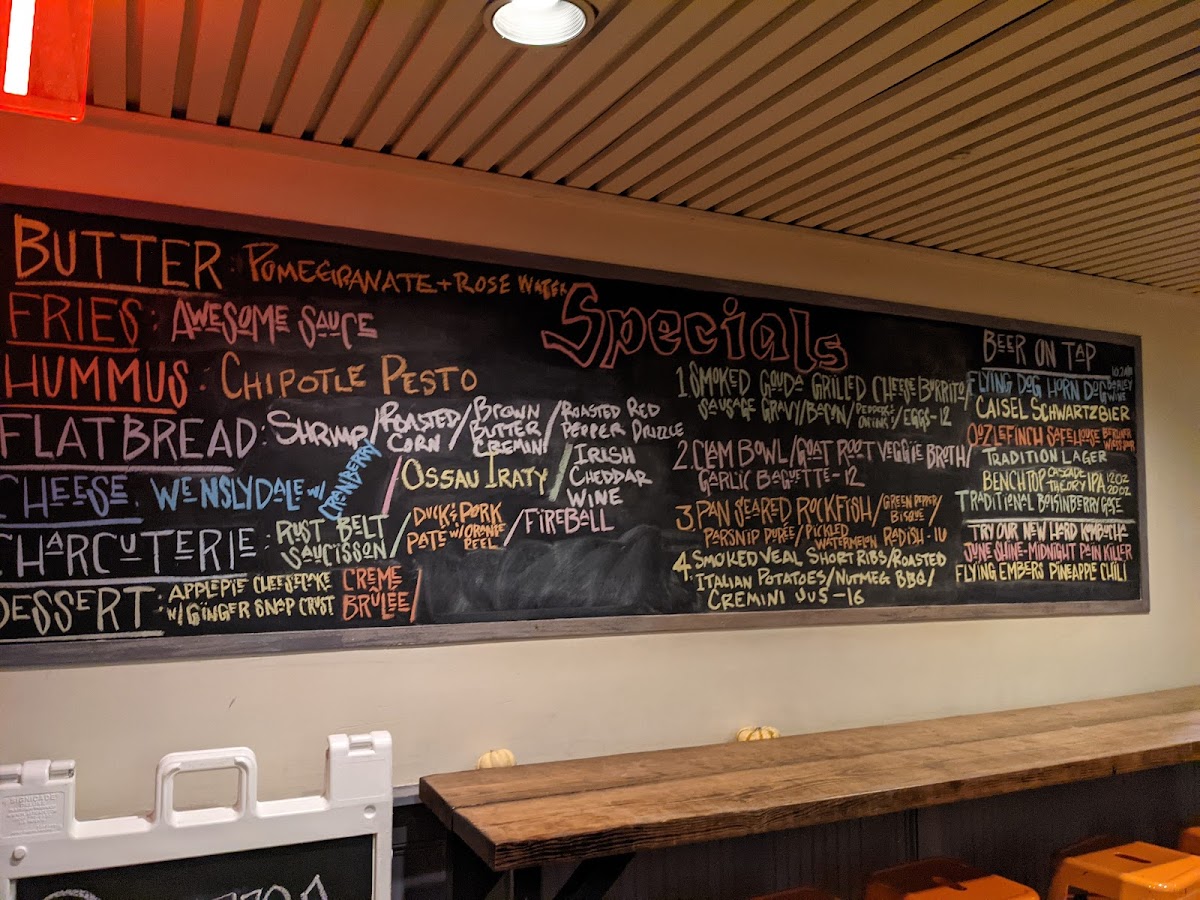 BUTTER: POMEGRANATE + ROSE WATER
FRIES: AWESOME SAUCE
HUMMUS: CHIPOTLE PESTO
FLATBREAD: SHRIMP/ROASTED CORN/BROWN BUTTER CREMINI/ROASTED RED PEPPER DRIZZLE
CHEESE: WENSLYDALE W/ CRANBERRY/OSSAU IRATY/IRISH CHEDDAR WINE
CHARCUTERIE: RUST BELT SAUCISSON/DUCK & PORK PATE W/ ORANGE PEEL/FIREBALL
DESSERT: APPLE PIE CHEESECAKE W/ GINGER SNAP CRUST CREME BRÛLEE/
Specials
1. SMOKED GOUDA GRILLED CHEESE BURRITO
SAUSAGE GRAVY/BACON/PEPPERS & ONIONS/EGGS-12
2. CLAM BOWL/GOAT ROOT VEGGIE BROTH/
GARLIC BAGUETTE-12
3. PAN SEARED ROCKFISH/GREEN PEPPER BISQUE/
PARSNIP PURÉE/PICKLED WATERMELON RADISH-
4. SMOKED VEAL SHORT RIBS/ROASTED
ITALIAN POTATOES/NUTMEG BBQ/
CREMINI JUS-16
BEER ON TAP
FLYING DOG HORN DOG BARLEY WINE
CAISEL SCHWARTZBIER
OOZLEFINCH SAFEHOUSE
TRADITION LAGER
BENCHTOP CASCADE THEORY IPA 12OZ 20OZ
TRADITIONAL BOISINBERRY GOSE
TRY OUR NEW HARD KOMBUCHA
JUNE SHINE-MIDNIGHT PAIN KILLER
FLYING EMBERS PINEAPPLE CHILI